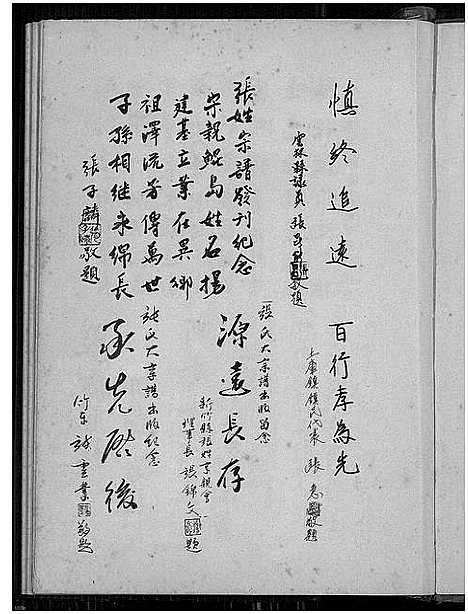 慎終追遠
雲林縣議員 張
敬題
百行孝為先
土庫鎮鎮民代表 張
敬題
張姓宗譜發刊紀念
宗親鯤島姓名揚
建基立業在異鄉
祖澤流芳傳萬世
子孫相繼永綿長
張子麟敬題
張氏大宗譜出版留念
源遠長存
新竹縣張姓宗親會
理事長 張錦文 題
張氏大宗譜出版紀念
承先啓後
竹東 張 業 敬題